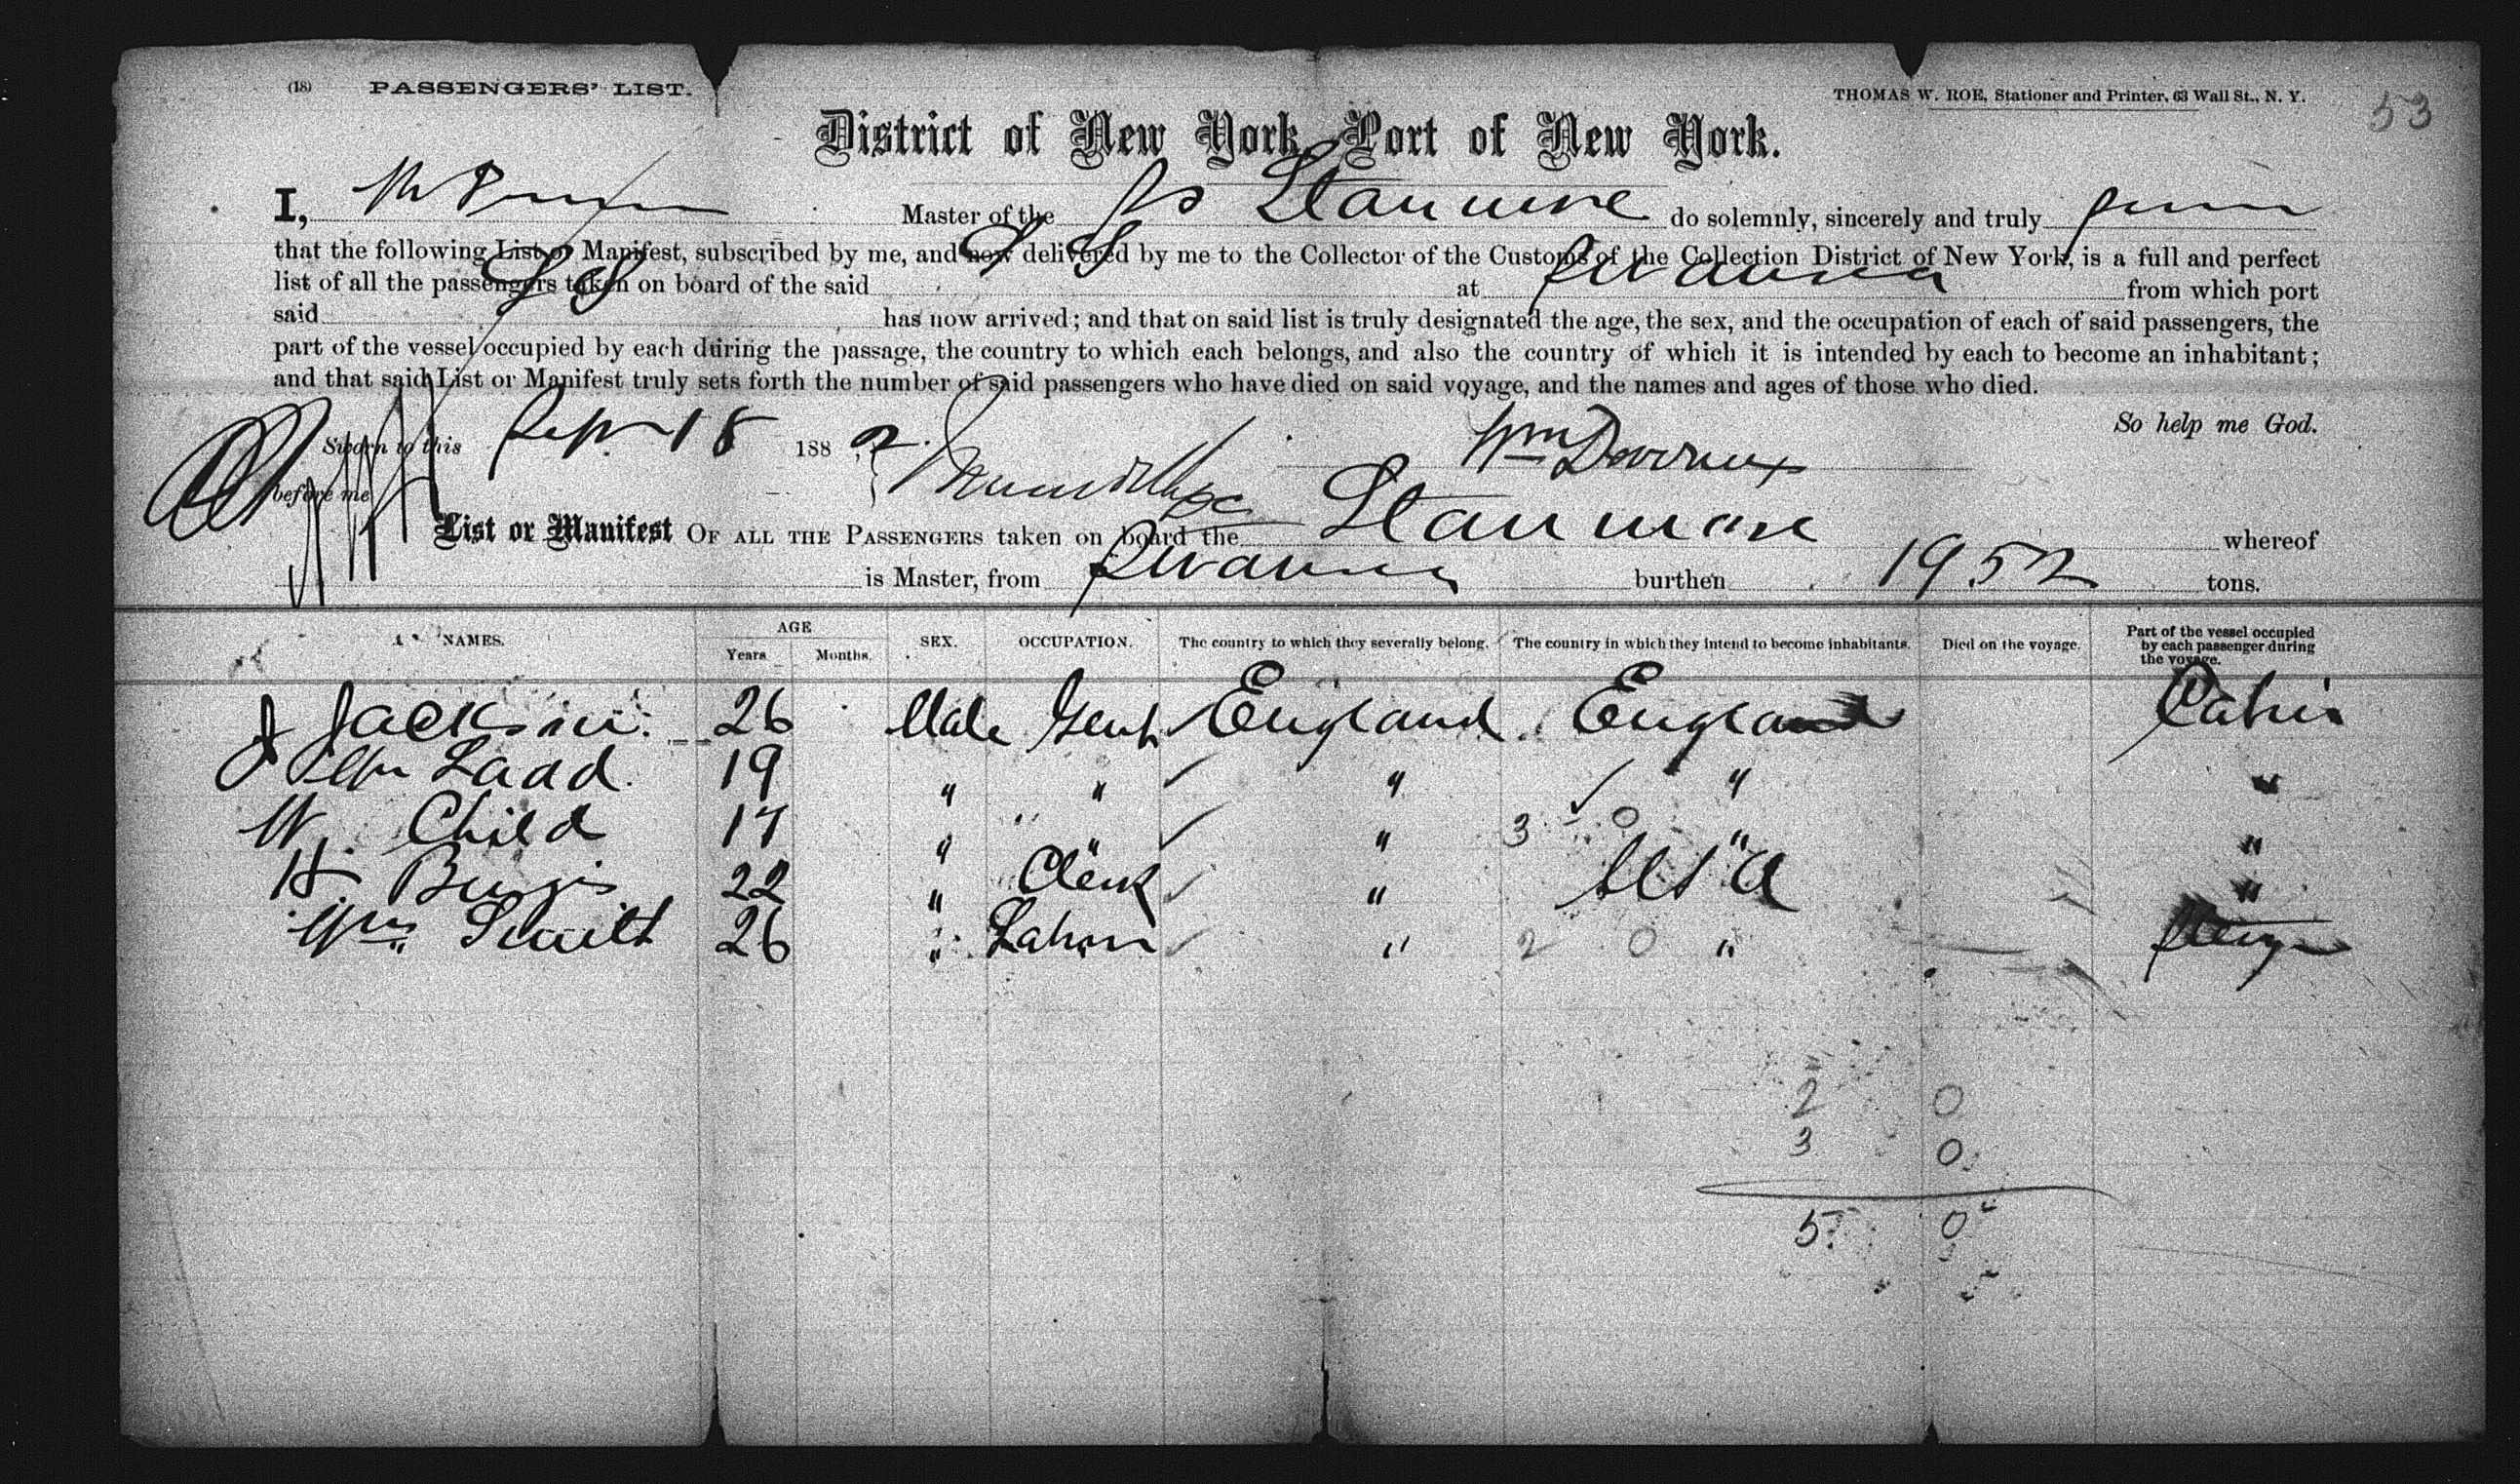 (18) PASSENGERS' LIST.
THOMAS W. ROE, Stationer and Printer, 63 Wall St., N. Y.
53
District of New York, Port of New York.
I, Master of the SS Stanmore do solemnly, sincerely and truly
that the following List or Manifest, subscribed by me, and now delivered by me to the Collector of the Customs of the Collection District of New York, is a full and perfect
list of all the passengers taken on board of the said SS at Swansea from which port
said SS has now arrived; and that on said list is truly designated the age, the sex, and the occupation of each of said passengers, the
part of the vessel occupied by each during the passage, the country to which each belongs, and also the country of which it is intended by each to become an inhabitant;
and that said List or Manifest truly sets forth the number of said passengers who have died on said voyage, and the names and ages of those who died.
So help me God.
Sworn to this Sep 18 1882
before me
Wm Devereux
List or Manifest OF ALL THE PASSENGERS taken on board the Stanmore whereof
is Master, from Swansea burthen 1952 tons.
NAMES. AGE Years Months. SEX. OCCUPATION. The country to which they severally belong. The country in which they intend to become inhabitants. Died on the voyage. Part of the vessel occupied by each passenger during the voyage.
J Jackson 26 Male Gent England England Cabin
Ladd 19 " " " " "
W. Child 17 " " " 3 0 " "
H Burgis 22 " Clerk " U S A "
Wm Smith 26 " Labor " 2 0 " Steerge
2 0
3 0
5 0